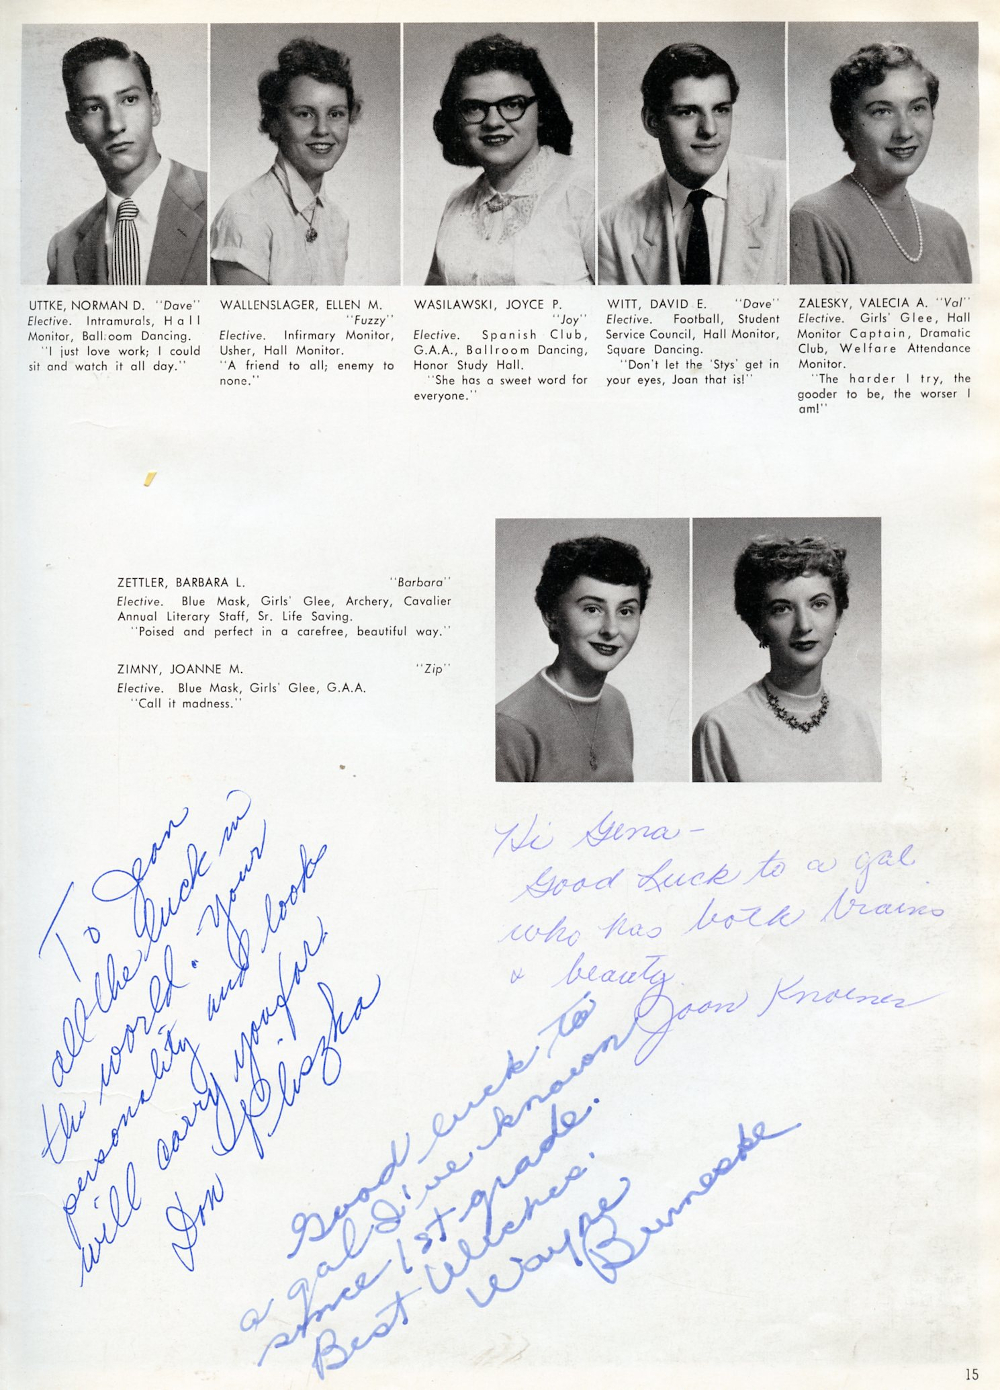 UTTKE, NORMAN D. "Dave"
Elective. Intramurals, Hall
Monitor, Ballroom Dancing.
"I just love work; I could
sit and watch it all day."
WALLENSLAGER, ELLEN M.
"Fuzzy"
Elective. Infirmary Monitor,
Usher, Hall Monitor.
"A friend to all; enemy to
none."
WASILAWSKI, JOYCE P.
"Joy"
Elective. Spanish Club,
G.A.A., Ballroom Dancing,
Honor Study Hall.
"She has a sweet word for
everyone."
WITT, DAVID E. "Dave"
Elective. Football, Student
Service Council, Hall Monitor,
Square Dancing.
"Don't let the 'Stys' get in
your eyes, Joan that is!"
ZALESKY, VALECIA A. "Val"
Elective. Girls' Glee, Hall
Monitor Captain, Dramatic
Club, Welfare Attendance
Monitor.
"The harder I try, the
gooder to be, the worser I
am!"
ZETTLER, BARBARA L. "Barbara"
Elective. Blue Mask, Girls' Glee, Archery, Cavalier
Annual Literary Staff, Sr. Life Saving.
"Poised and perfect in a carefree, beautiful way."
ZIMNY, JOANNE M. "Zip"
Elective. Blue Mask, Girls' Glee, G.A.A.
"Call it madness."
To Jean
all the luck in
the world. Your
personality and looks
will carry you far.
Don Pliszka
Hi Gena-
Good Luck to a gal
who has both brains
& beauty
Joan Knoener
Good luck to
a gal I've known
since 1st grade.
Best Wishes.
Wayne
Burneske
15